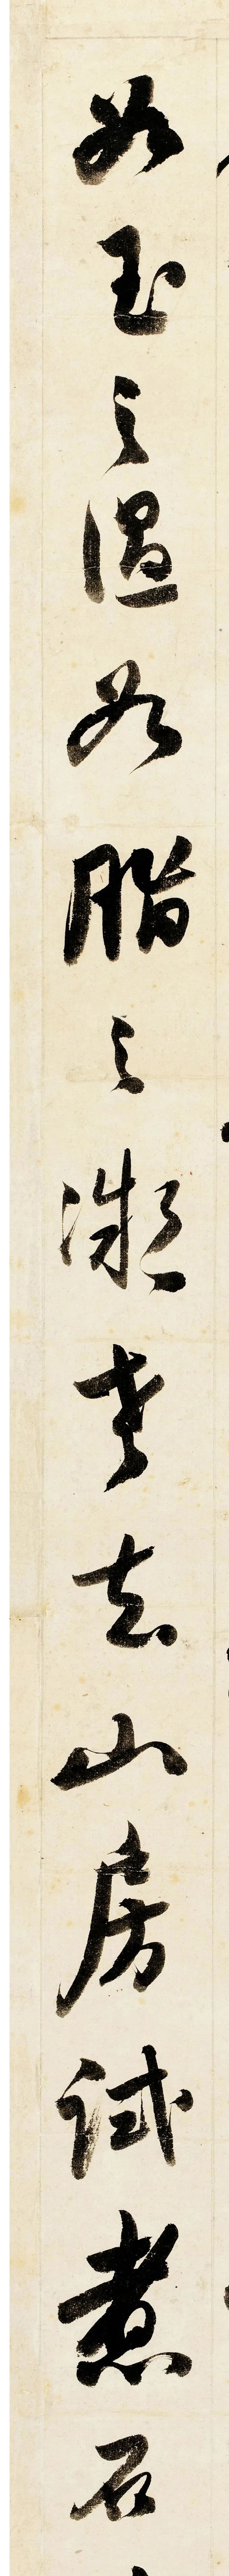 如玉之温如脂之凝老去山房試煮石